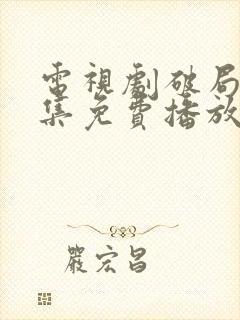 電視劇破局
集免費播放
嚴宏昌